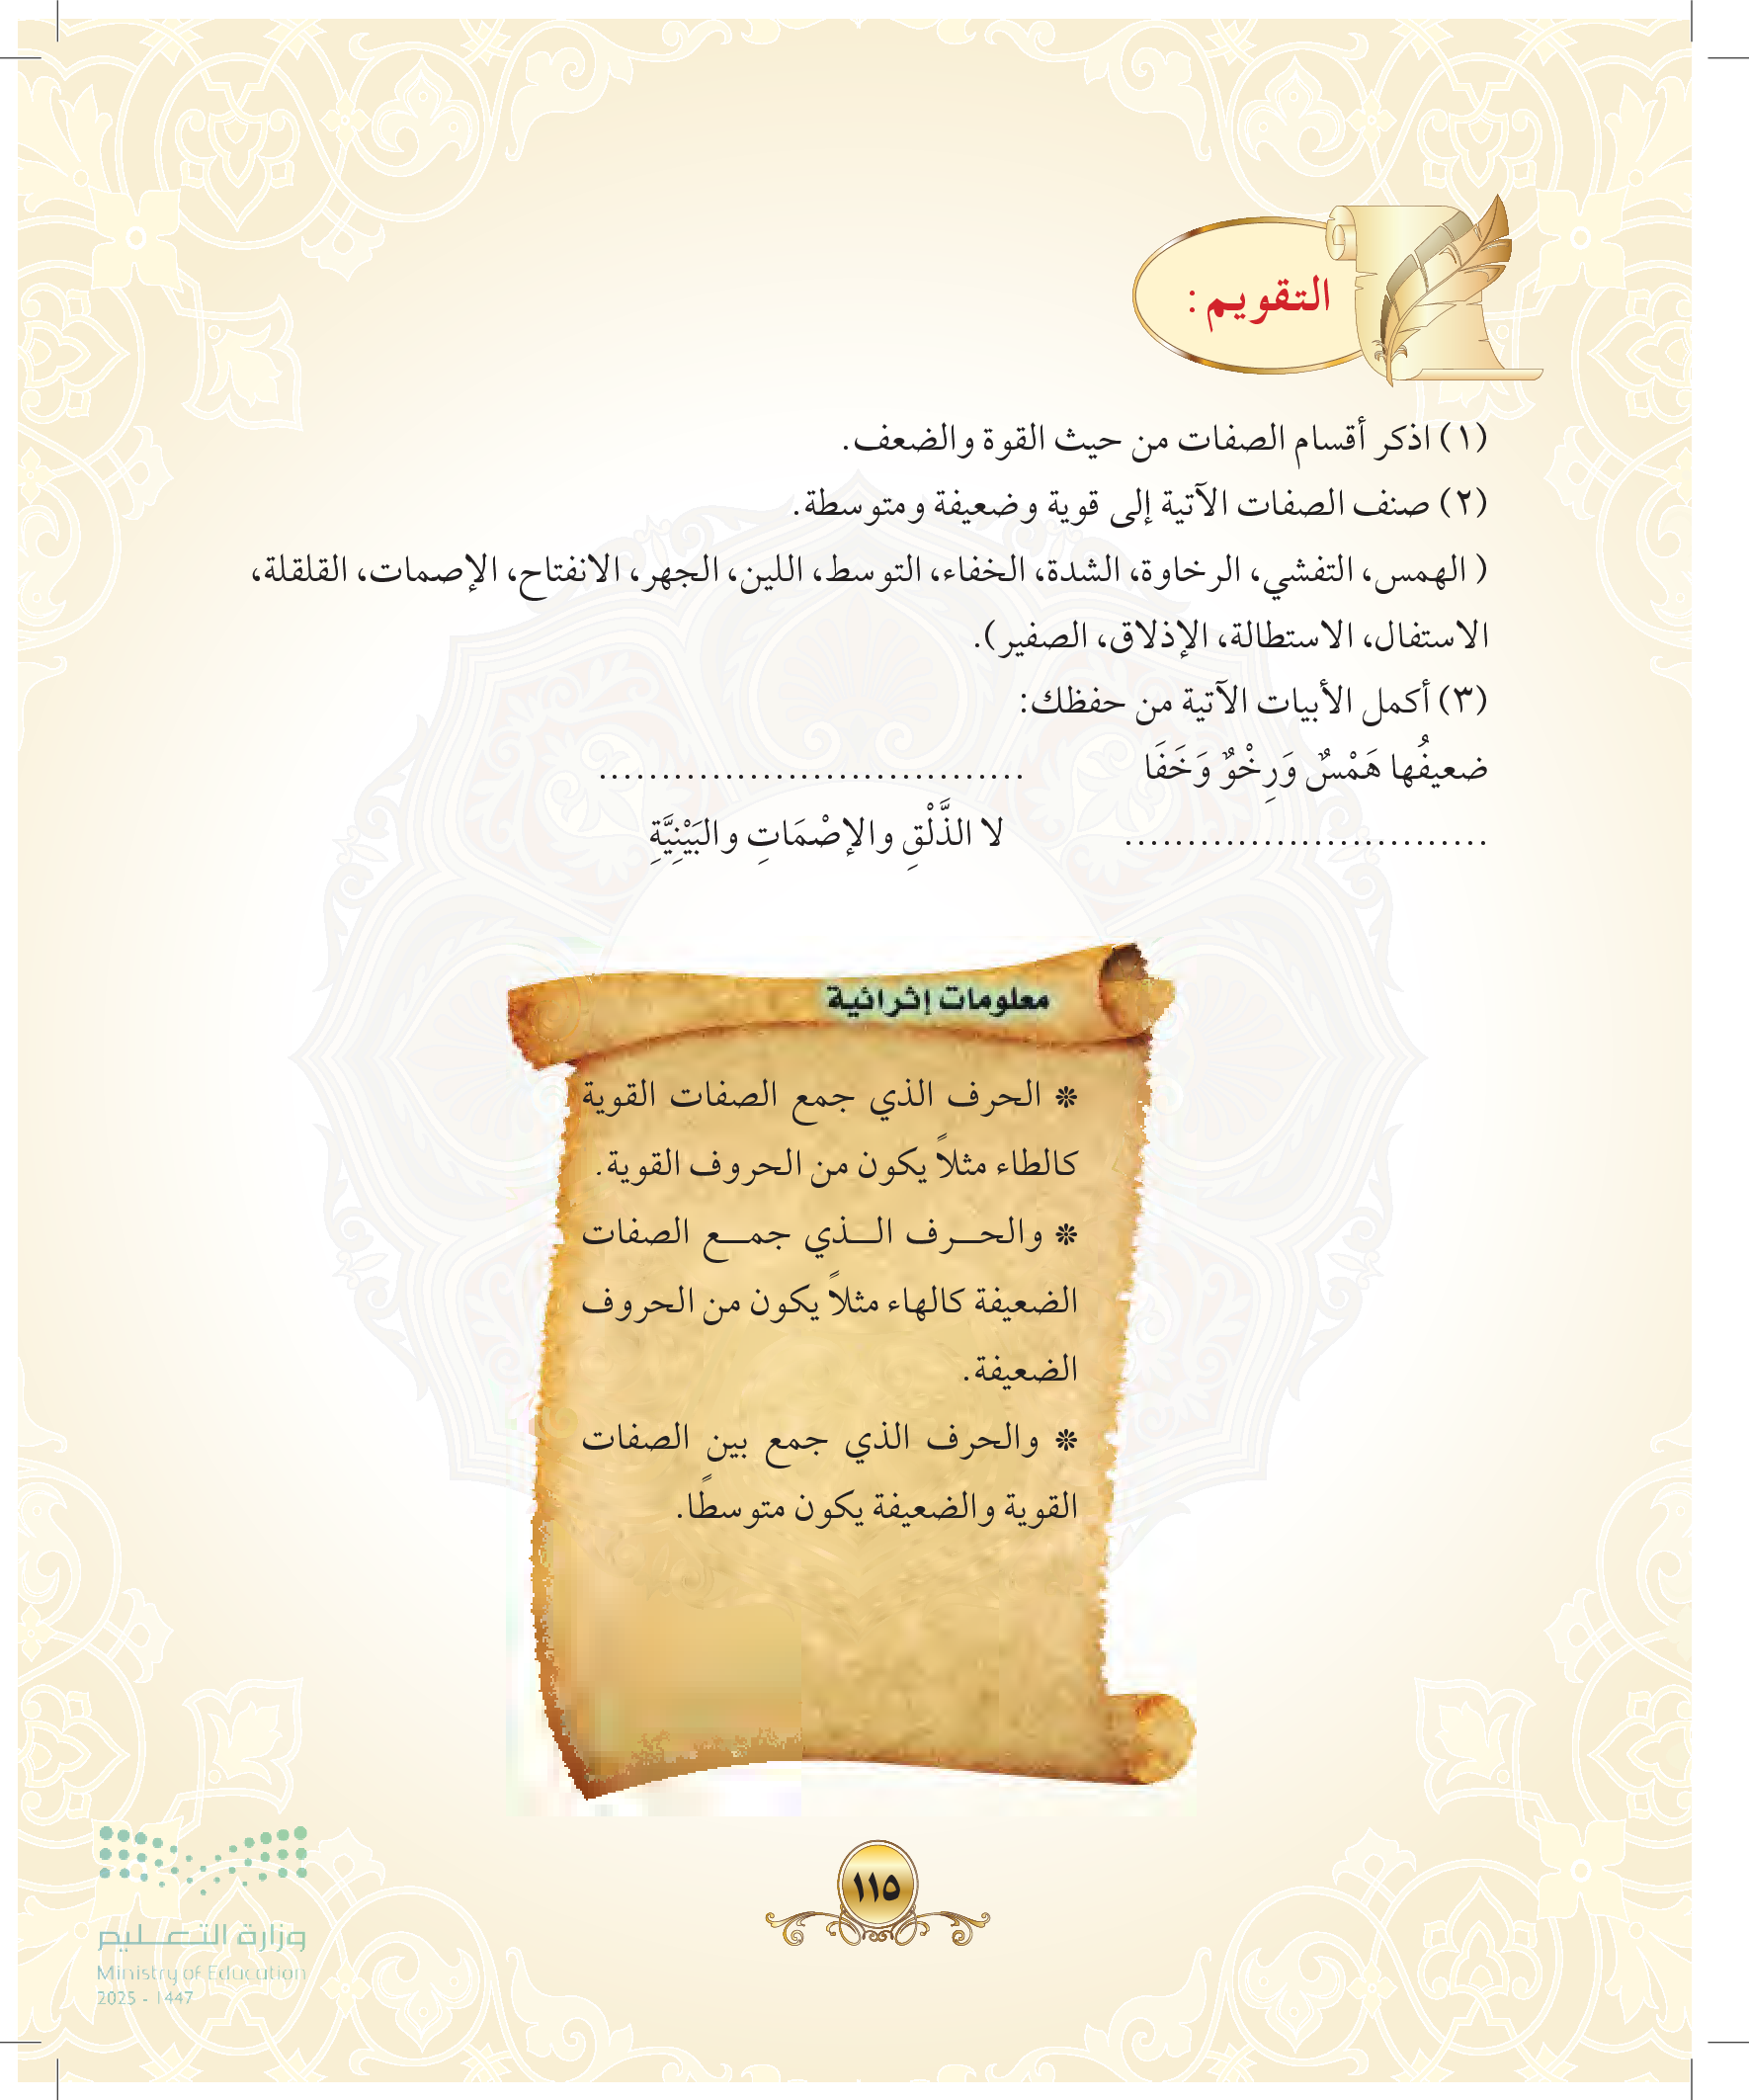 التقويم :
(١) اذكر أقسام الصفات من حيث القوة والضعف.
(٢) صنف الصفات الآتية إلى قوية وضعيفة ومتوسطة.
( الهمس، التفشي، الرخاوة، الشدة، الخفاء، التوسط، اللين، الجهر، الانفتاح، الإصمات، القلقلة،
الاستفال، الاستطالة، الإذلاق، الصفير).
(٣) أكمل الأبيات الآتية من حفظك:
ضعيفُها هَمْسٌ وَرِخْوٌ وَخَفَا ..................................
............................. لا الذَّلْقِ والإصْمَاتِ والبَيْنِيَّةِ
معلومات إثرائية
❊ الحرف الذي جمع الصفات القوية
كالطاء مثلاً يكون من الحروف القوية.
❊ والحـــرف الـــذي جمـــع الصفات
الضعيفة كالهاء مثلاً يكون من الحروف
الضعيفة.
❊ والحرف الذي جمع بين الصفات
القوية والضعيفة يكون متوسطًا.
١١٥
وزارة التـعـلـيم
Ministry of Education
2025 - 1447